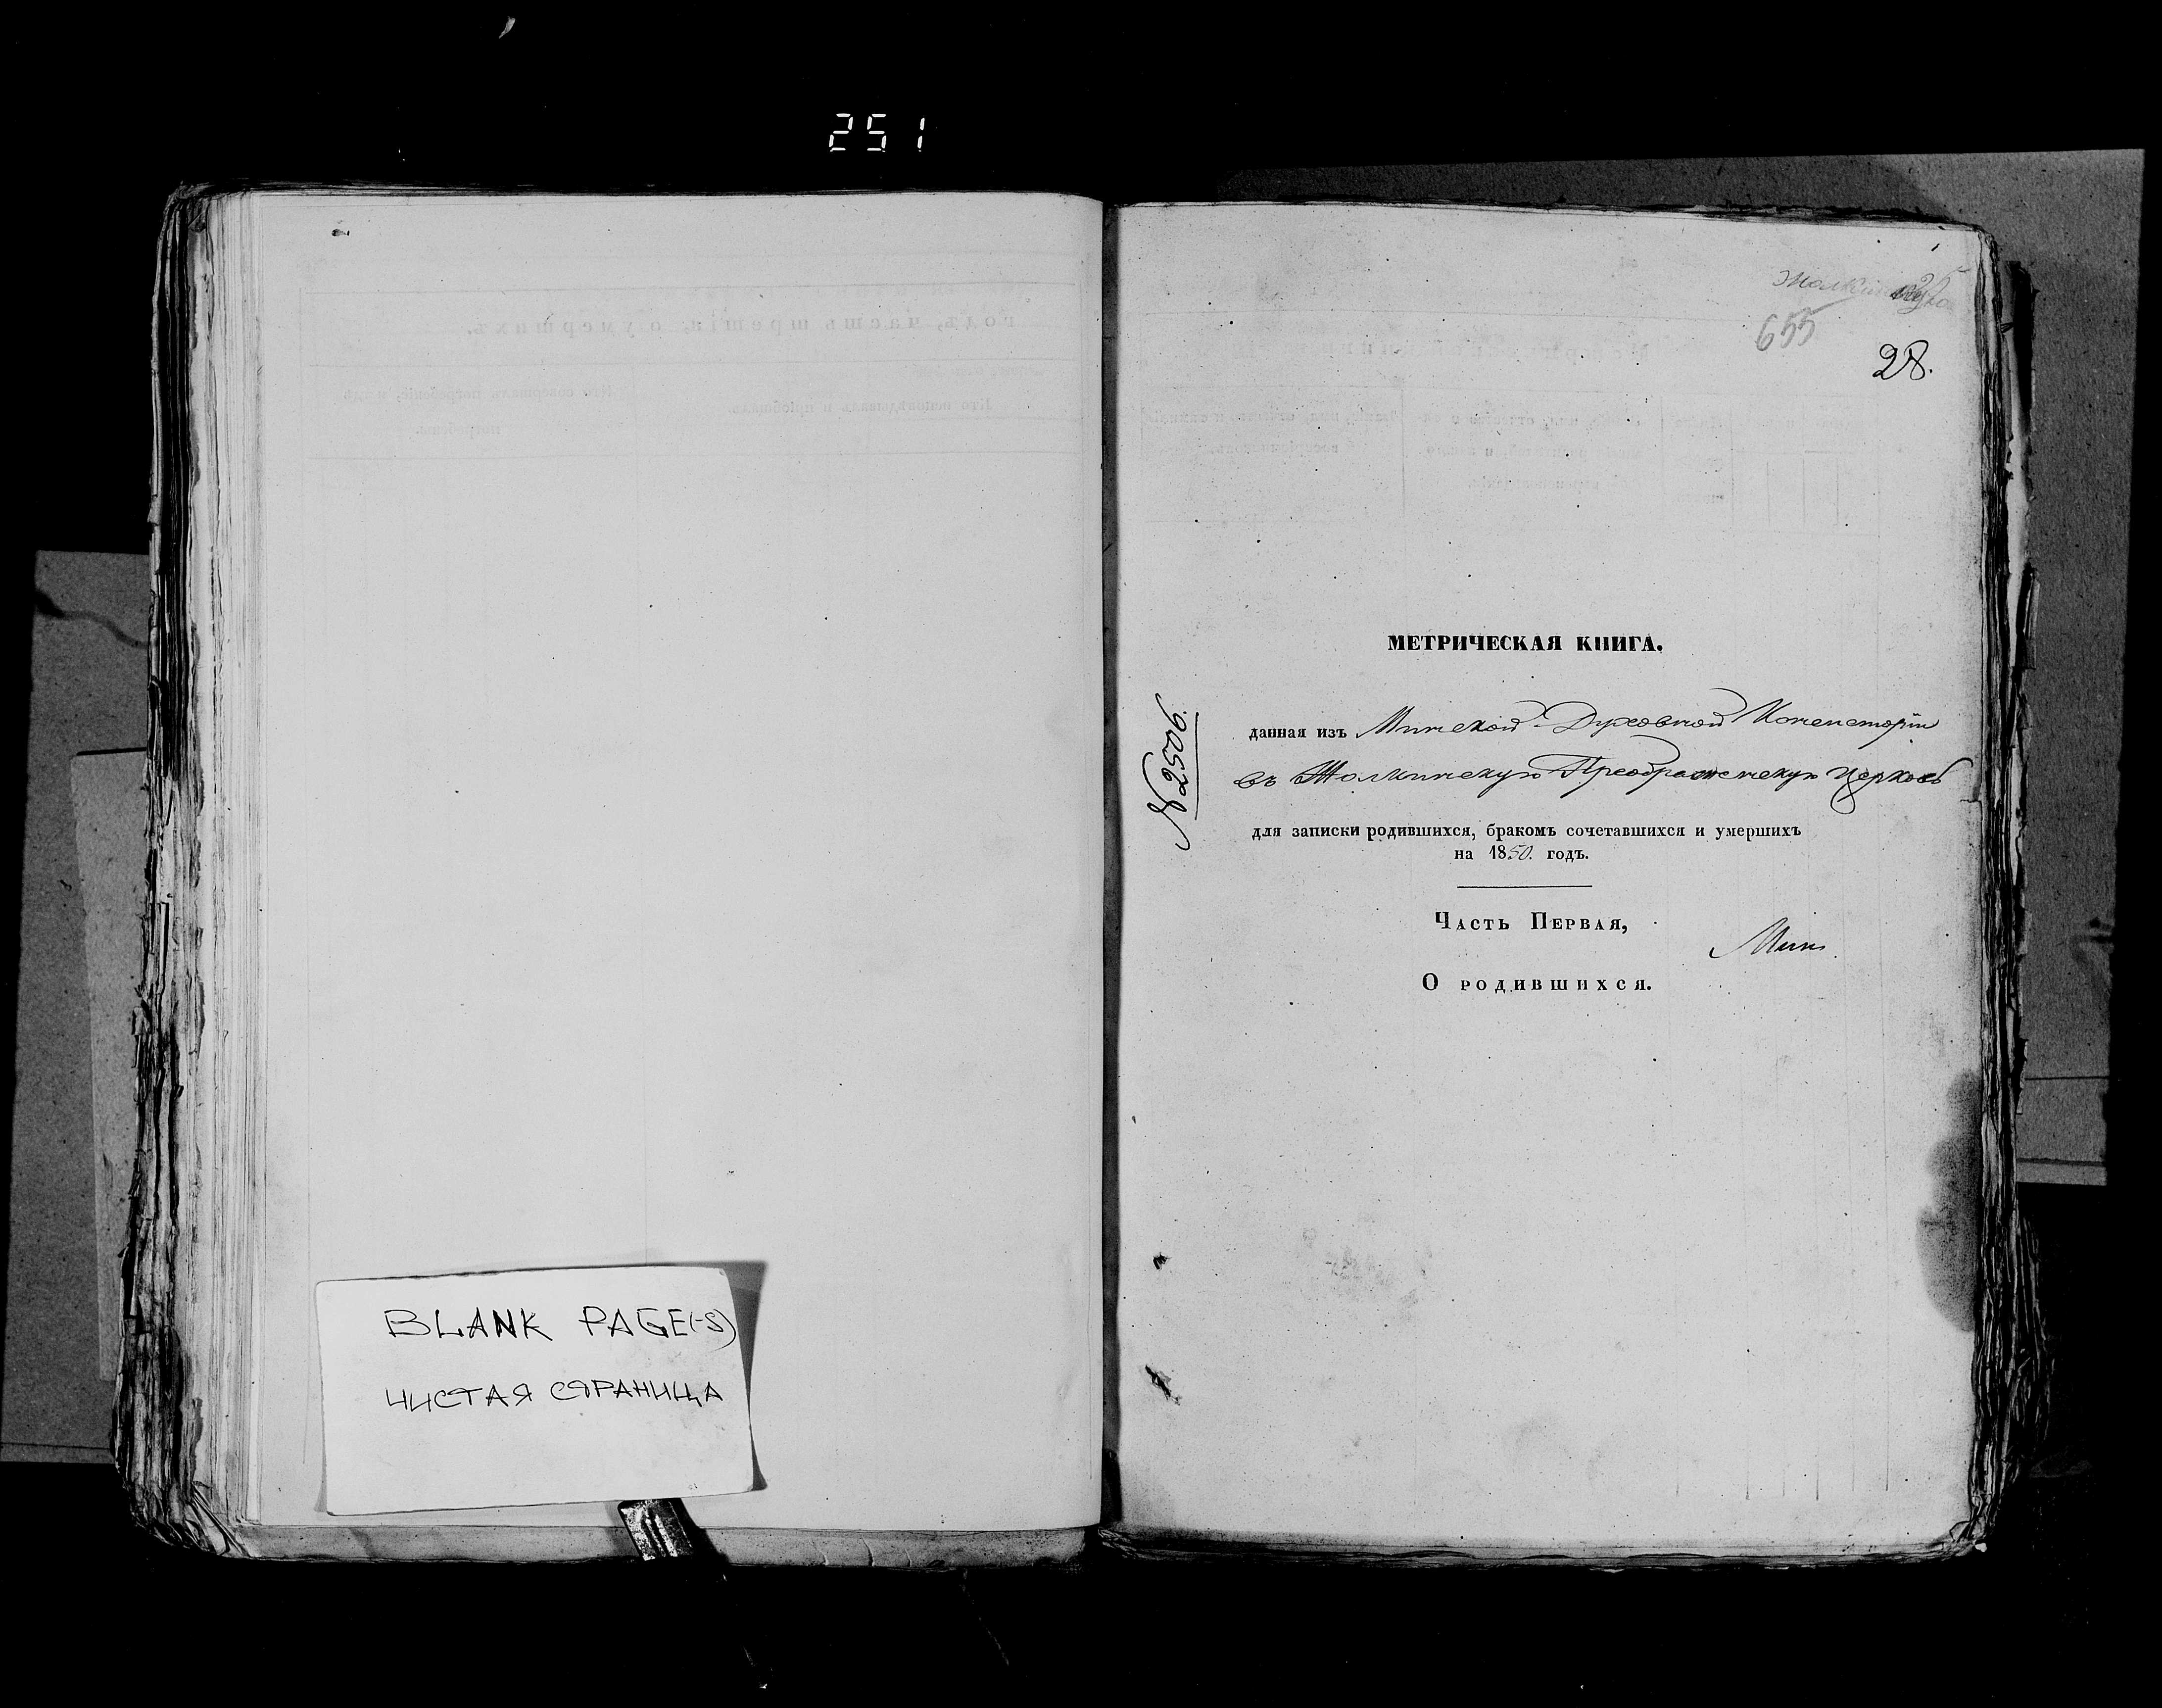 251
BLANK PAGE(-S)
ЧИСТАЯ СТРАНИЦА
655
28.
№ 2506.
МЕТРИЧЕСКАЯ КНИГА.
данная изъ Минской Духовной Консисторіи
въ Преображенскую церковь
для записки родившихся, бракомъ сочетавшихся и умершихъ
на 1850. годъ.
Часть Первая,
О родившихся.